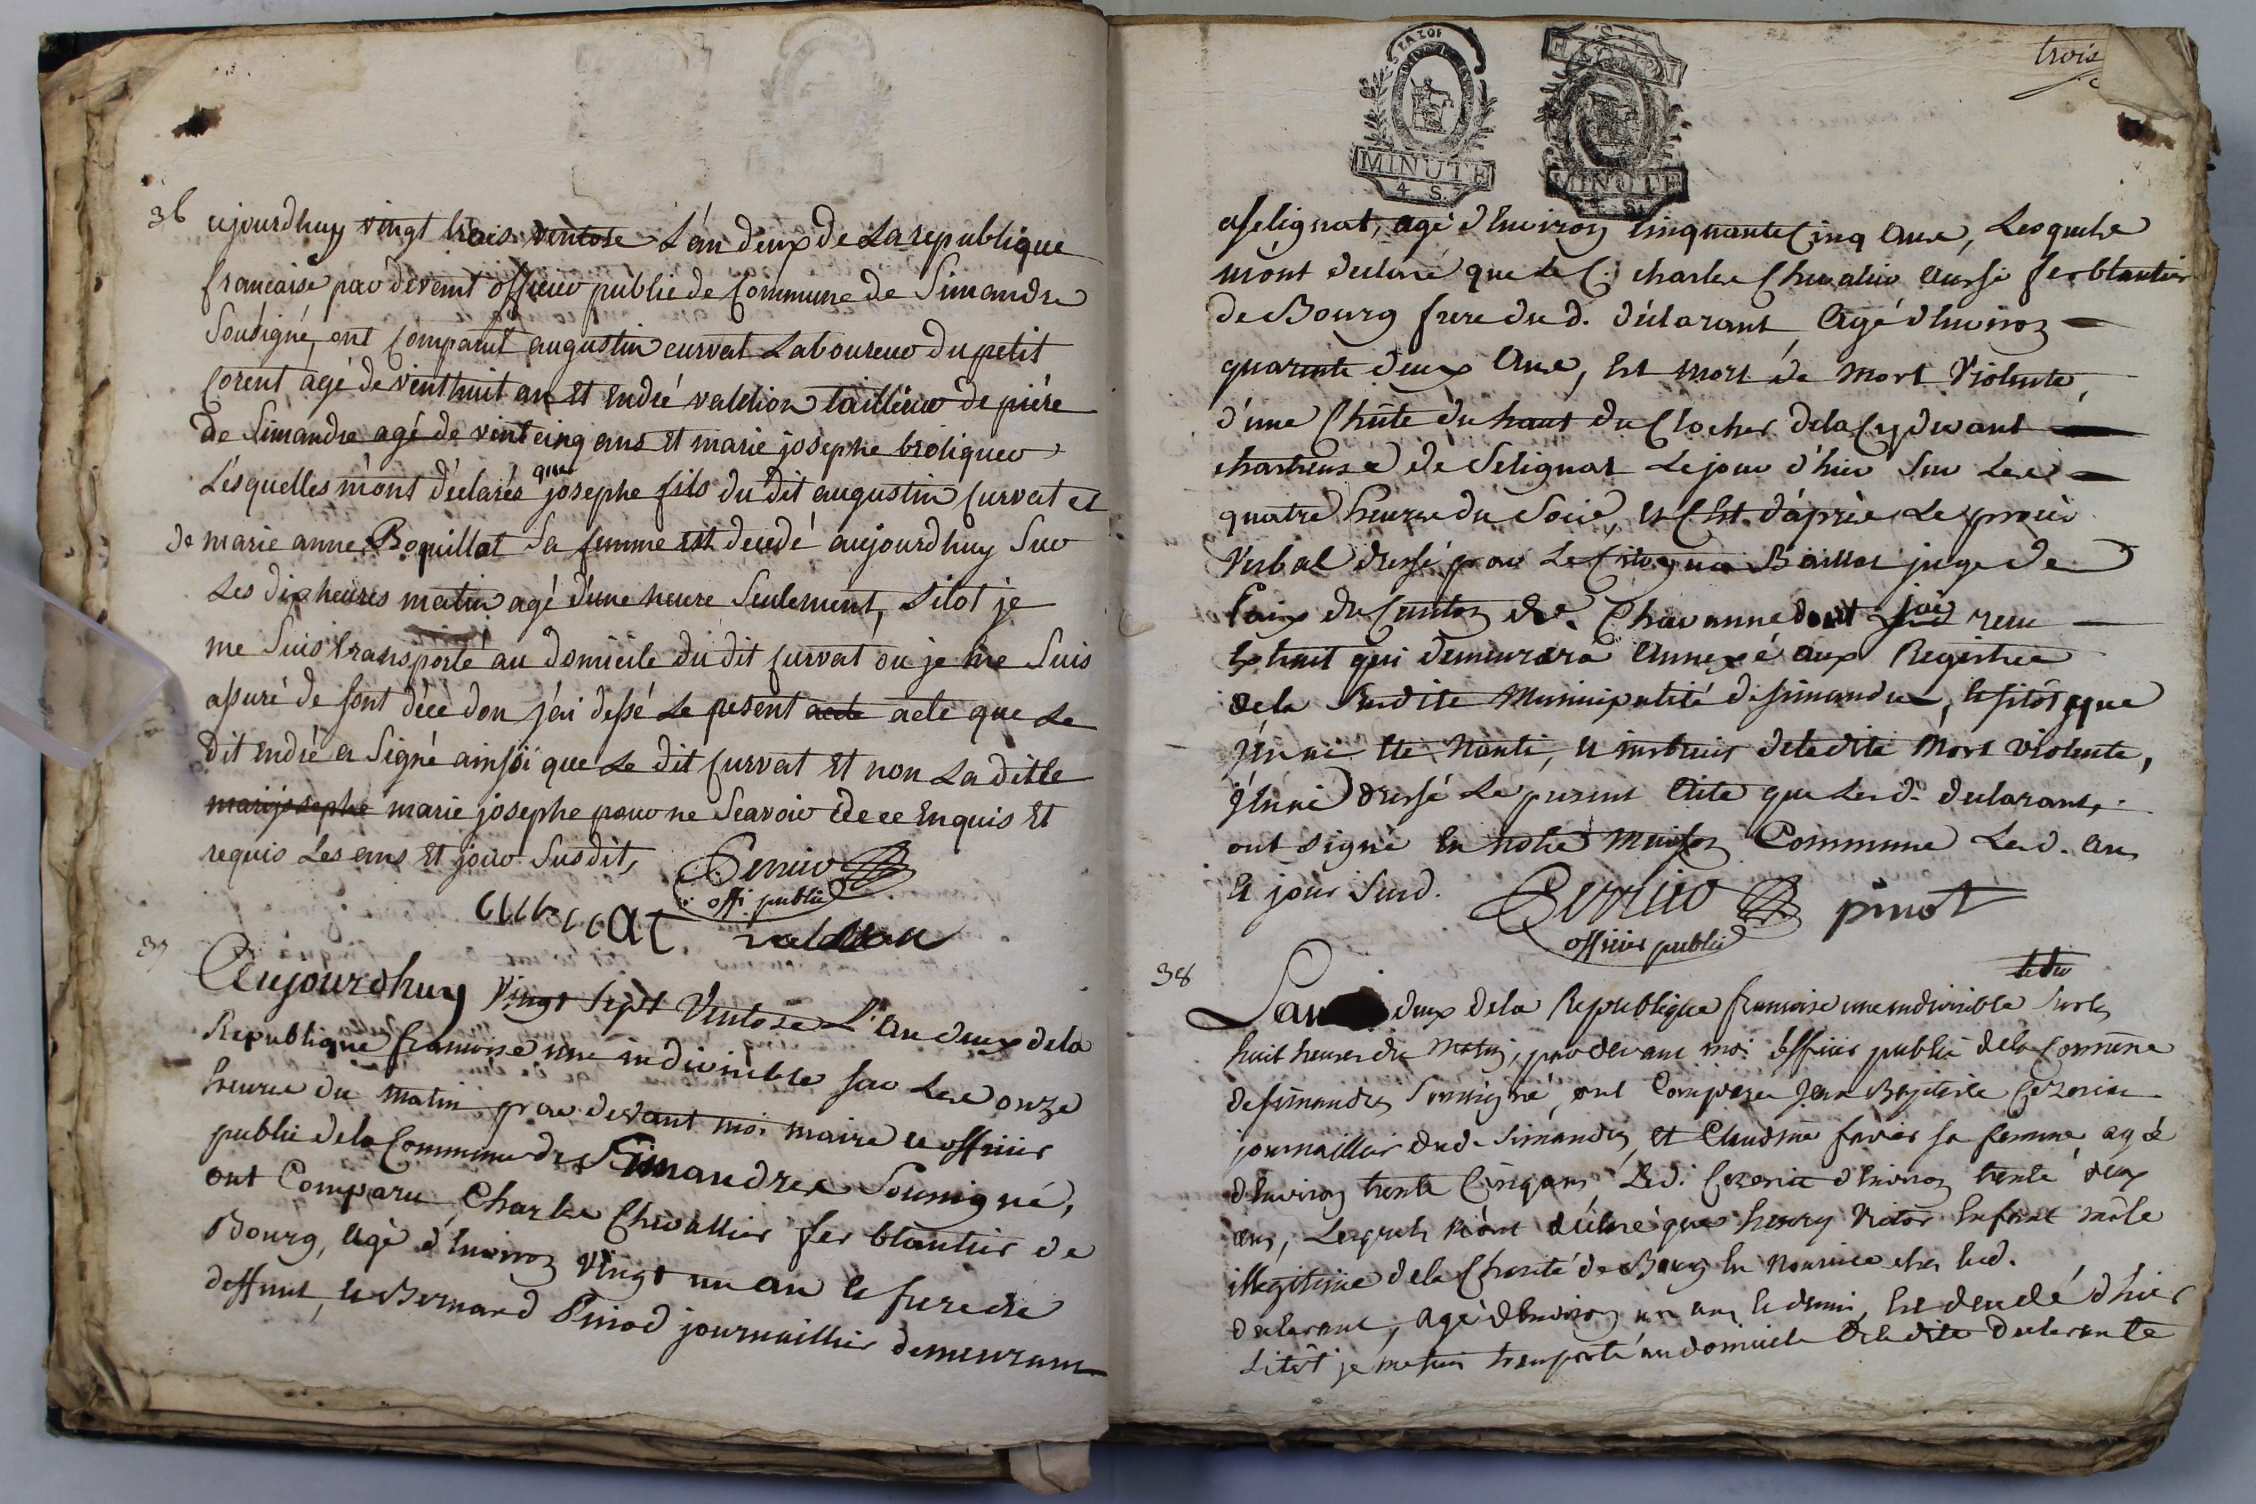 36
ujourdhuy vingt trois ventose L'an deux de La republique
francaise par devent officier public de Commune de Simandre
Sousigné, ont Comparut augustin curvat Laboureur du petit
Corent agé de vint huit an Et Endré valdion tailleur de piére
de Simandre agé de vint cinq ans Et marie josephe broliquer
Lésquelles m'ont déclarés que josephe fils du dit augustin Curvat et
de marie anne Boquillat Sa femme est decedé aujourdhuy Sur
Les dix heures matin agé d'une heure Seulement, Sitot je
me Suis transporté au domicile du dit Curvat ou je me Suis
assuré de sont décè don j'ai dessé Le pesent acte acte que Le
dit Endré a Signé ainsi que Le dit Curvat Et non La ditte
marijosephe marie josephe pour ne Scavoir de ce Enquis Et
requis Les ans Et jour Susdit,
Perrier
offi public
curvat valdion
37
Aujourdhuy Vingt Sept Ventose L'an deux de la
Republique francoise une indivisible sur Les onze
heures du matin par devant moi maire et officier
public de la Commune de Simandre Sousigné,
ont Comparu Charles Chevallier fer blantier de
Bourg, agé d'Environ Vingt un an le frere du
deffunt, et Bernard Pinod journallier demeurant
trois
MINUTE
4. S.
MINUTE
aselignat, agé d'Environ Cinquante Cinq ans, Lesquels
m'ont declaré que le C. charles Chevalier aussi ferblantier
de Bourg frere du d. déclarant, agé d'Environ
quarente deux ans, Est mort de mort Violente,
d'une Chûte du haut du Clocher de la Cy devant
chartreuse de Selignat Le jour d'hier Sur Les
quatre heures du Soir, et C'Est d'après Le procès
Verbal dressé par Le Citoyen Baillat juge de
Paix du Canton de Chavanne dont j'ai reçu
Extrait qui demeurera annexé aux Registres
de la Susdite Municipalité de simandre, et sitôt que
j'En ai été Nanti, et instruit de la dite Mort violente,
j'En ai dressé Le present acte que Les d. declarants
ont signé En notre Maison Commune Les d. an
Et jour Susd.
Perrier
officier public
pinot
38
L'an deux de la Republique francoise une indivisible Sur les
huit heures du Matin, par devant moi officier public de la Commune
de simandre Sousigné, ont Comparu Jean Baptiste
journallier dud. Simandre, Et Claudine favier sa femme agée
d'Environ trente Cinq ans Led. d'Environ trente deux
ans, Lesquels m'ont déclaré que henry Victor Enfant mâle
illegitime de la Charité de Bourg En Nourrice chez lesd.
declarant, agé d'Environ un an et demi, Est decedé d'hier
Sitôt je me suis transporté au domicile de la dite declarante